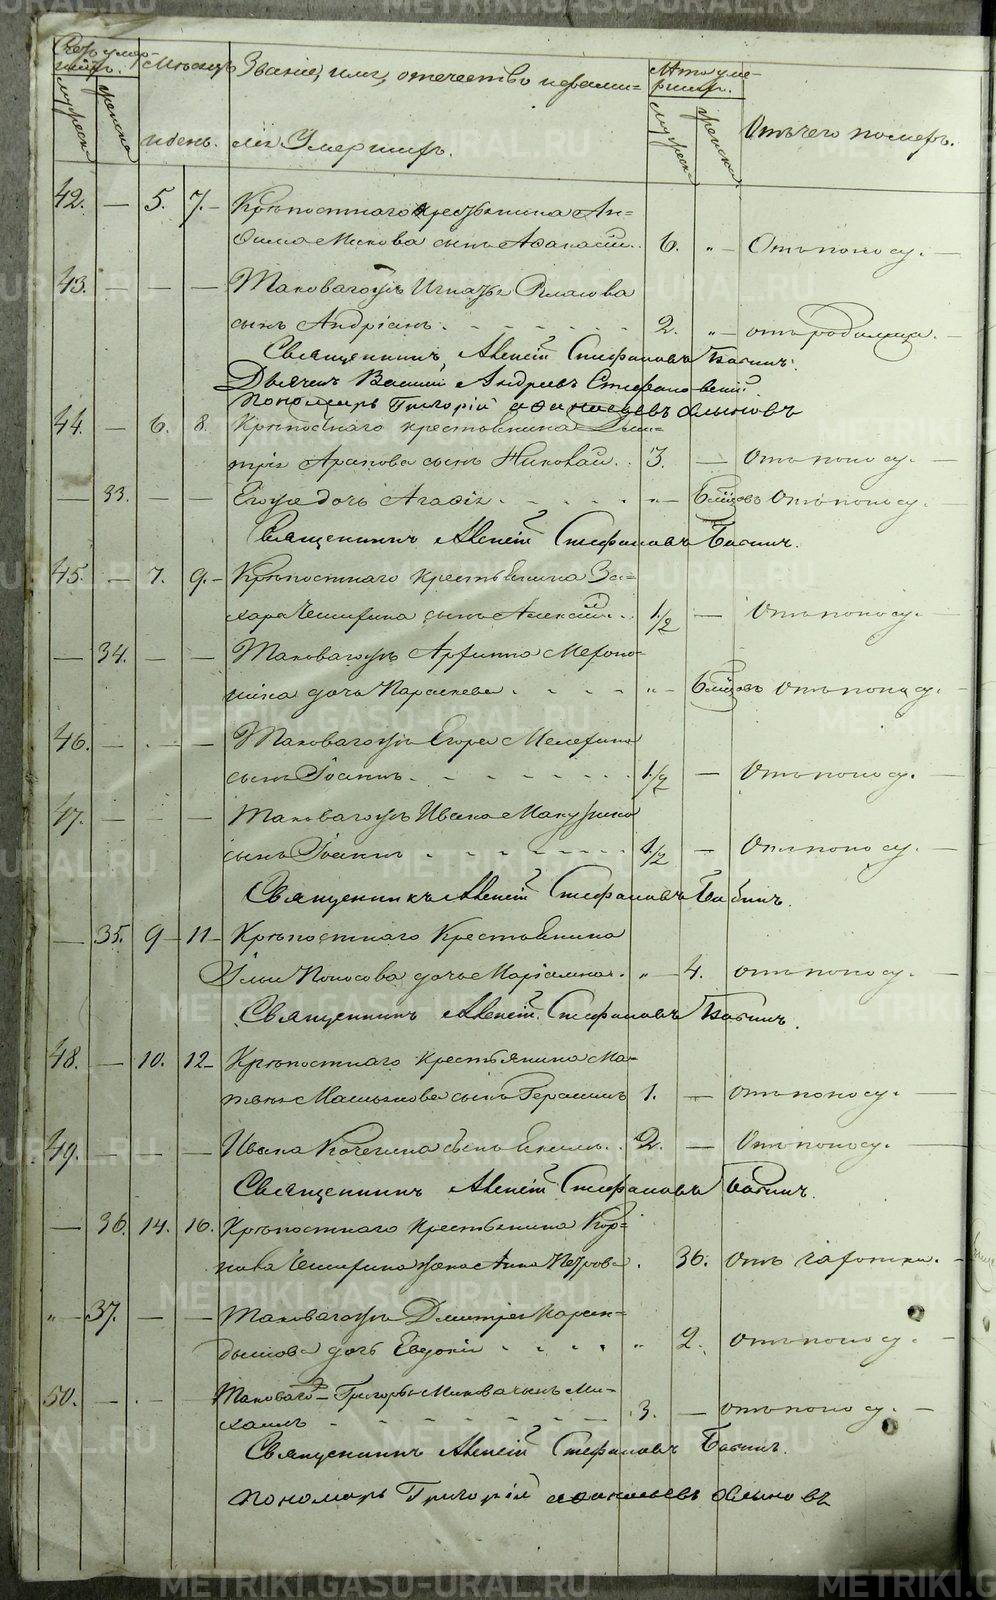 Счетъ умер-
шихъ.
Мѣсяцъ
Званіе, имя, отчество и фами-
Лѣта уме-
ршихъ.
мужеска
женска
и день.
лія Умершихъ.
мужеска
женска
Отъ чего померъ.
42. — 5. 7. — Крѣпостнаго крестьянина Ан-
Микова сынъ Афанасій. 6. „ — Отъ поносу. —
43. — — — Таковагожъ Игнатья Власова
сынъ Андріанъ. 2. „ — отъ родимца. —
Священникъ Алексій Стефановъ Бабинъ.
Дьячекъ Василій Андреевъ Стефановскій
Пономарь Григорій Афанасьевъ Хлыновъ
44. — 6. 8. Крѣпостнаго крестьянина Дми-
трія Арапова сынъ Николай. 3. — Отъ поносу. —
— 33. — — Егожъ дочь Агафія „ — 6 мѣсцовъ Отъ поносу. —
Священникъ Алексій Стефановъ Бабинъ.
45. — 7. 9. — Крѣпостнаго крестьянина За-
хара Чемурина сынъ Алексій. 1/2 — Отъ поносу. —
— 34. — — Таковагожъ
дочь Параскева „ — 6 мѣсцовъ отъ поносу. —
46. — — — Таковагожъ Егора
сынъ Іоаннъ. 1/2 — Отъ поносу. —
47. — — — Таковагожъ Ивана Макурина
сынъ Іоаннъ 1/2 — Отъ поносу. —
Священникъ Алексій Стефановъ Бабинъ.
— 35. 9 — 11 — Крѣпостнаго Крестьянина
Ильи Попосова дочь Маріамна. „ — 4. отъ поносу. —
Священникъ Алексій Стефановъ Бабинъ.
48. — 10. 12 — Крѣпостнаго крестьянина Ма-
твѣя Машьянова сынъ Герасимъ 1. — отъ поносу. —
49. — — — Ивана Кочегина сынъ Екимъ. 2. — Отъ поносу. —
Священникъ Алексій Стефановъ Бабинъ.
— 36. 14. 16. Крѣпостнаго крестьянина Кор-
нила Чемурина жена Анна Петрова. 36. отъ чахотки. —
„ — 37. — — Таковагожъ Дмитрія
дочь Евдокія „ 2. отъ поносу. —
50. — — — Таковаго — Григорья Микова сынъ Ми-
хаилъ 3. — отъ поносу. —
Священникъ Алексій Стефановъ Бабинъ.
Пономарь Григорій Афанасьевъ Хлыновъ
METRIKI.GASO-URAL.RU